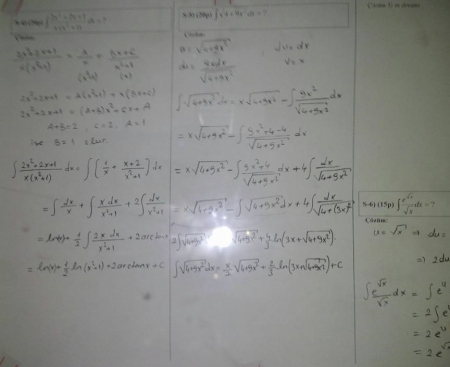 ∫ (2x²+2x+1)/(x(x²+1)) dx = ?
Çözüm:
(2x²+2x+1)/(x(x²+1)) = A/x + (Bx+C)/(x²+1)
(x²+1) (x)
2x²+2x+1 = A(x²+1) + x(Bx+C)
2x²+2x+1 = (A+B)x² + Cx + A
A+B=2, C=2, A=1
ise B=1 olur.
∫ (2x²+2x+1)/(x(x²+1)) dx = ∫ [1/x + (x+2)/(x²+1)] dx
= ∫ dx/x + ∫ x dx/(x²+1) + 2∫ dx/(x²+1)
= ln(x) + 1/2 ∫ 2x dx/(x²+1) + 2arctanx
= ln(x) + 1/2 ln(x²+1) + 2arctanx + C
∫ √(4+9x²) dx = ?
Çözüm:
u = √(4+9x²), dv = dx
du = 9xdx/√(4+9x²) v = x
∫ √(4+9x²) dx = x√(4+9x²) - ∫ 9x²/√(4+9x²) dx
= x√(4+9x²) - ∫ (9x²+4-4)/√(4+9x²) dx
= x√(4+9x²) - ∫ (9x²+4)/√(4+9x²) dx + 4∫ dx/√(4+9x²)
= x√(4+9x²) - ∫ √(4+9x²) dx + 4∫ dx/√(4+(3x)²)
2∫ √(4+9x²) dx = x√(4+9x²) + 4/3 ln(3x+√(4+9x²))
∫ √(4+9x²) dx = x/2 √(4+9x²) + 2/3 ln(3x+√(4+9x²)) + C
S-6) (15p) ∫ e^√x/√x dx = ?
Çözüm:
u = √x ⇒ du =
⇒ 2du
∫ e^√x/√x dx = ∫ e^u
= 2∫ e^u
= 2 e^u
= 2 e^√x